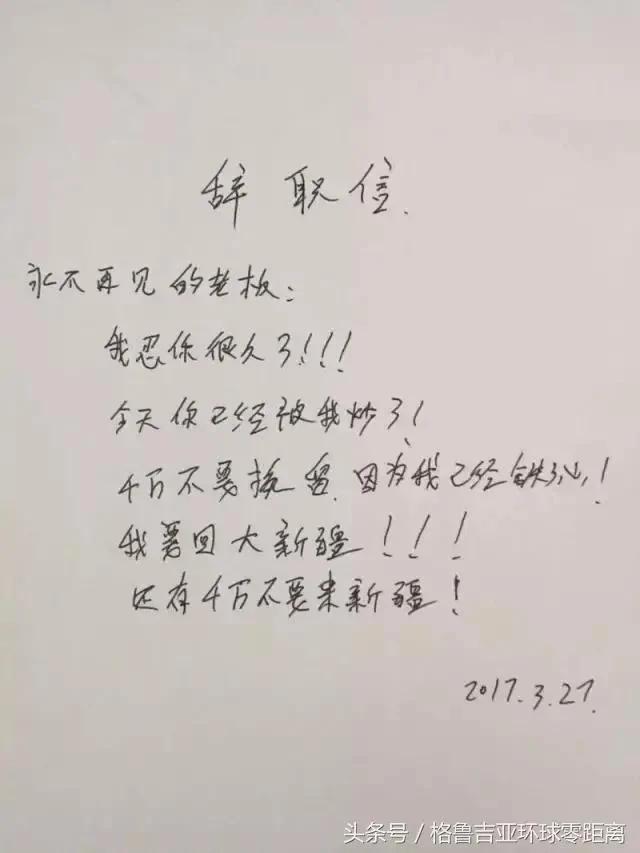 辞职信.
永不再见的老板：
我忍你很久了！！！
今天你已经被我炒了！
千万不要挽留，因为我已经铁了心！
我要回大新疆！！！
还有千万不要来新疆！
2017.3.27.
头条号／格鲁吉亚环球零距离